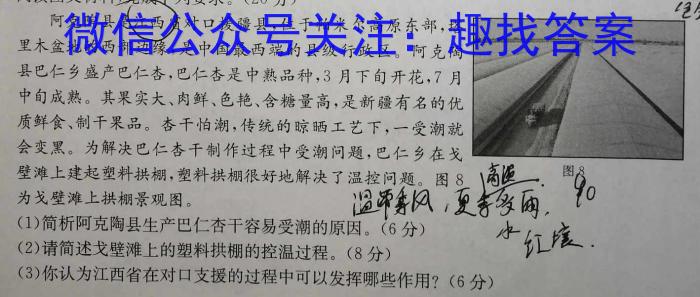 微信公众号关注：趣找答案
县巴仁乡盛产巴仁杏，巴仁杏是中熟品种，3月下旬开花，7月
中旬成熟。其果实大、肉鲜、色艳、含糖量高，是新疆有名的优
质鲜食、制干果品。杏干怕潮，传统的晾晒工艺下，一受潮就
会变黑。为解决巴仁杏干制作过程中受潮问题，巴仁乡在戈
壁滩上建起塑料拱棚，塑料拱棚很好地解决了温控问题。图8
为戈壁滩上拱棚景观图。
图8
高温
夏季多雨，
(1)简析阿克陶县生产巴仁杏干容易受潮的原因。(6分)
(2)请简述戈壁滩上的塑料拱棚的控温过程。(8分)
(3)你认为江西省在对口支援的过程中可以发挥哪些作用？(6分)